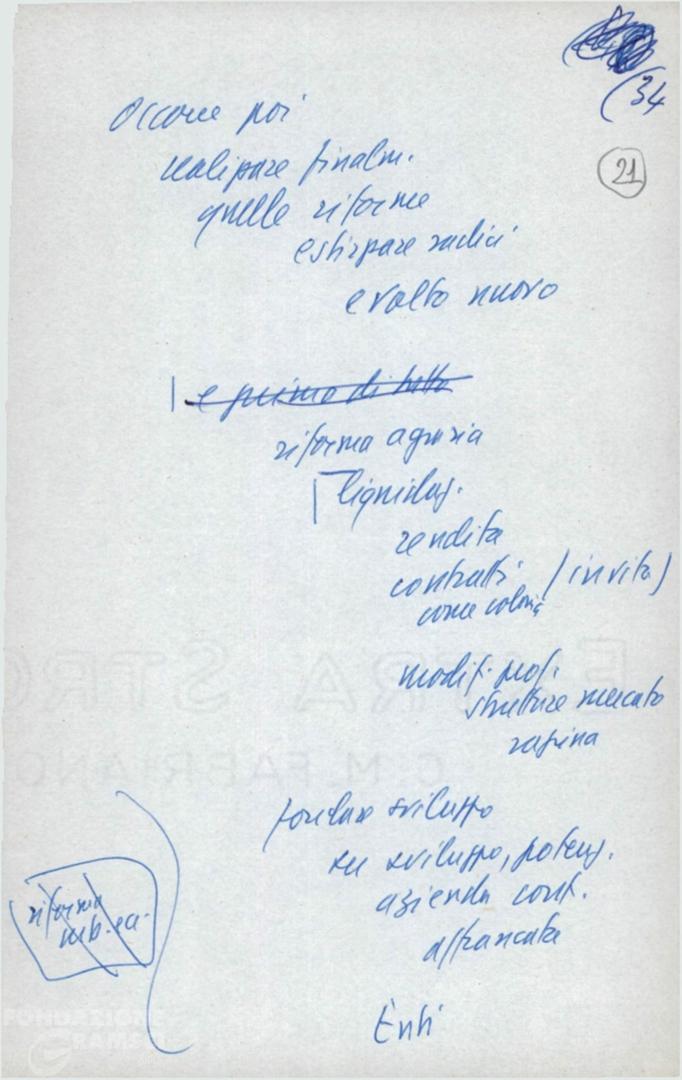 (34
21
Occorre poi
realizzare finalm.
quelle riforme
estirpare radici
e volto nuovo
e primo di tutto
riforma agraria
liquidaz.
rendita
contratti (invito)
come colonia
modif. prof.
strutture mercato
rapina
fondare sviluppo
su sviluppo, potenz.
azienda cont.
affrancata
riforma
urb.
Enti
EXTRA STRO
C.M. FABRIANO
FONDAZIONE
GRAMSCI